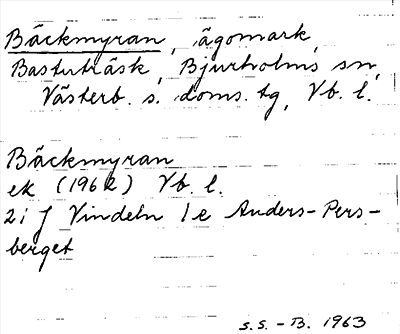 Bäckmyran, ägomark,
Basturträsk, Bjurholms sn,
Västerb. s. doms. tg, Vb. l.
Bäckmyran
ek (1962) Vb. l.
21 J Vindeln 1 e Anders-Pers-
berget
S.S. - B. 1963